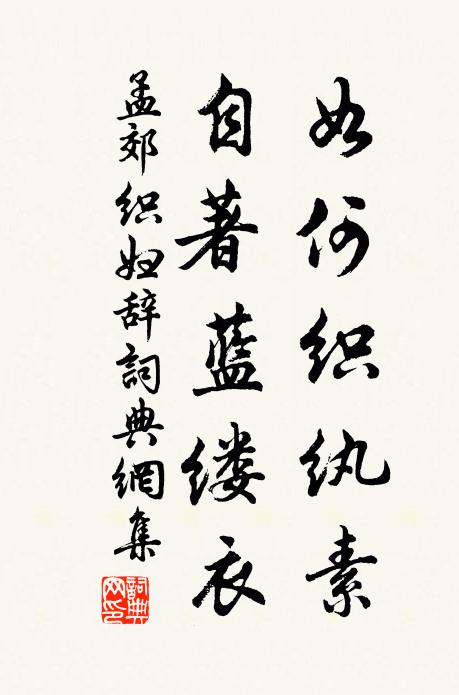 如何织纨素
自著蓝缕衣
孟郊织妇辞詞典網集
詞典网印